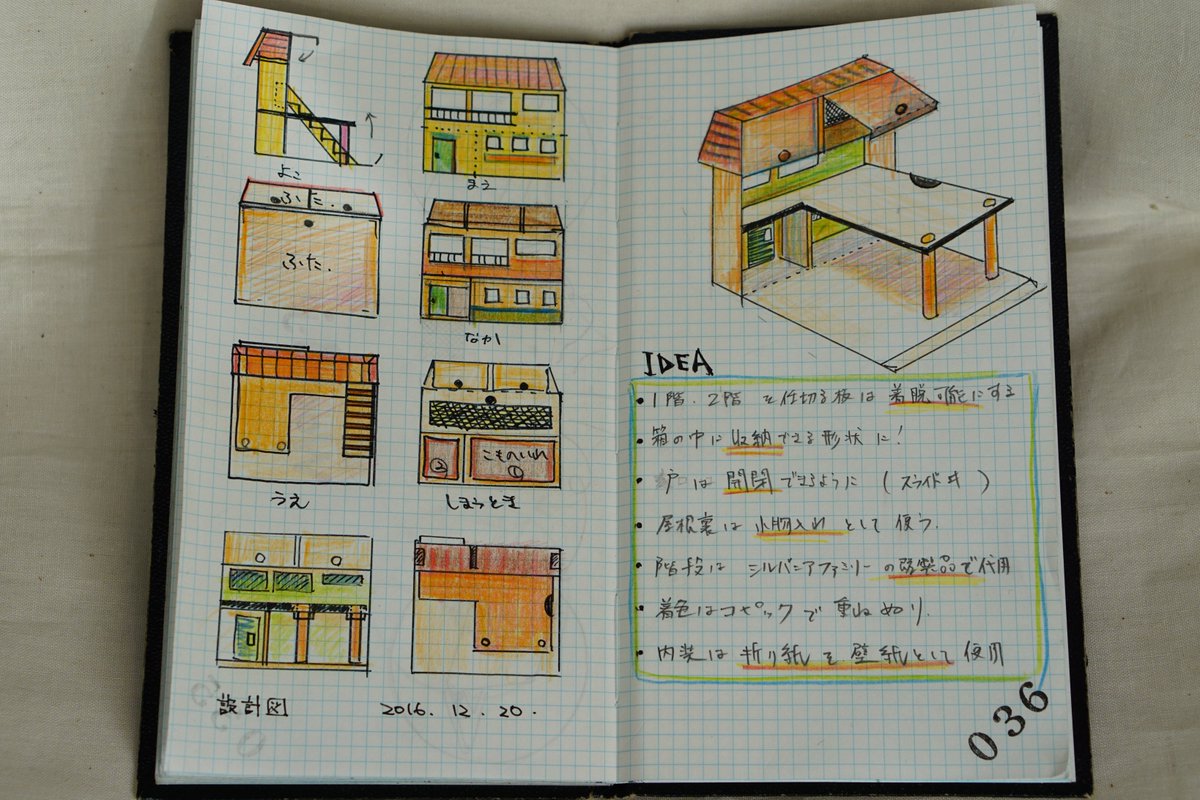 よこ
まえ
ふた.
ふた.
なか
うえ
②
こものいれ
①
しまうとき
設計図
2016. 12. 20.
IDEA
• 1階.2階 を仕切る板は 着脱可能にする
• 箱の中に収納できる形状に!
• 戸は 開閉できるように (スライド式)
• 屋根裏は 小物入れ として 使う.
• 階段は シルバニアファミリー の既製品で代用
• 着色はコピックで 重ねぬり.
• 内装は 折り紙を壁紙として 使用
036